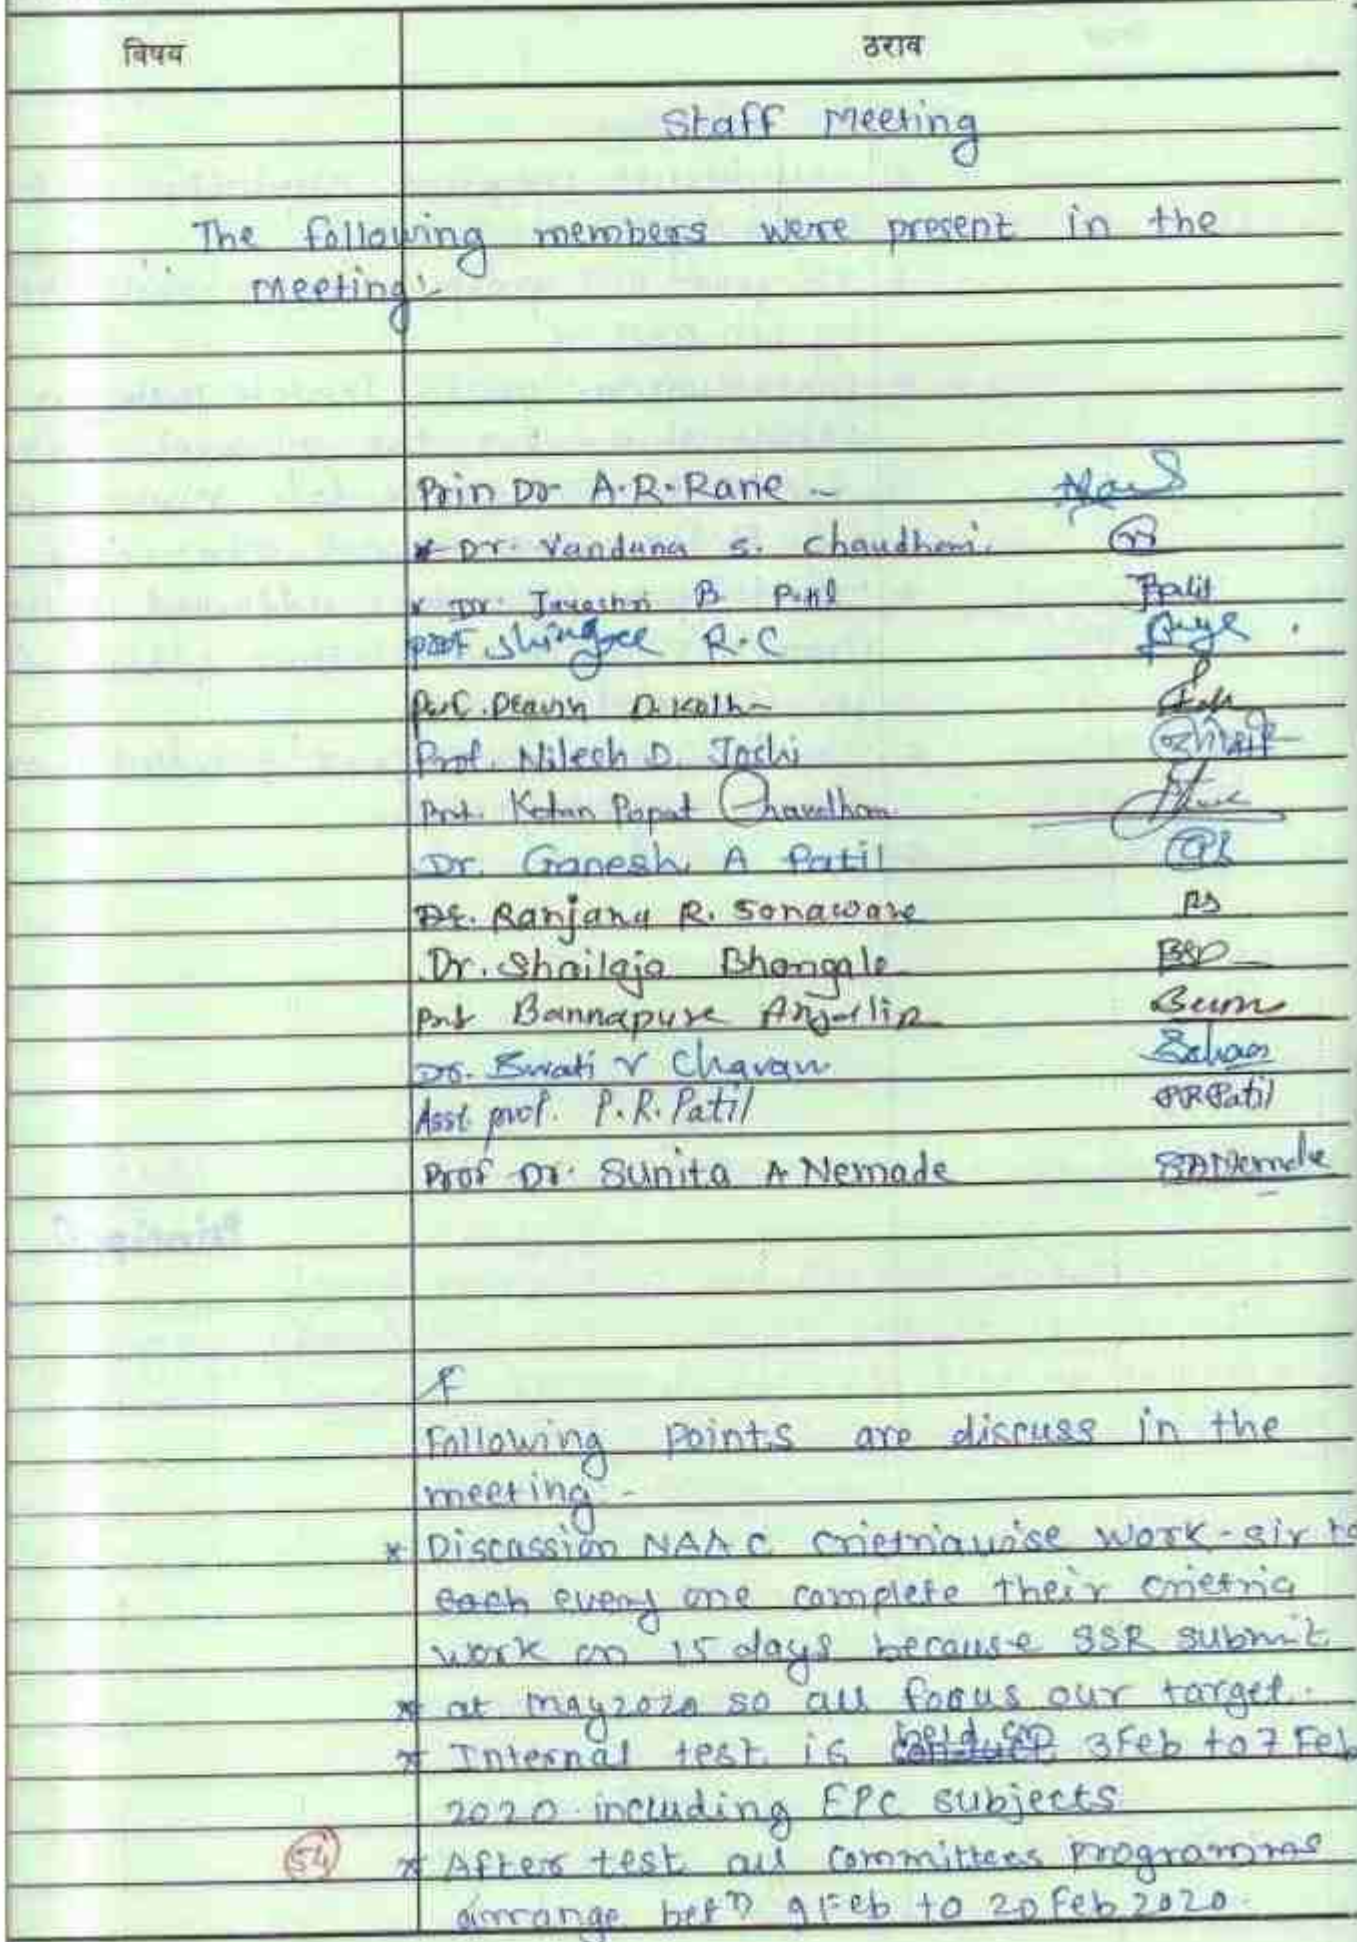 विषय ठराव
Staff Meeting
The following members were present in the
Meeting:-
Prin Dr A.R.Rane -
* Dr. Vandana S. Chaudhari.
* Dr. Jayashri B Patil Patil
Prof Shingre R.C
Prof. D. Kolhe
Prof. Nilesh D. Joshi
Prof. Ketan Popat Chaudhari
Dr. Ganesh A Patil
Dr. Ranjana R. Sonaware RS
Dr. Shailaja Bhangale
Prof Bannapure Anjali
Dr. Swati V Chavan
Asst. prof. P.R.Patil PRPatil
Prof Dr. Sunita A Nemade SANemade
F
Following Points are discuss in the
meeting -
* Discussion NAAC crietriawise work - sir to
each every one complete their crietria
work on 15 days because SSR submit
* at may2020 so all focus our target.
* Internal test is held on 3Feb to 7 Feb
2020 including EPC subjects
54 * After test all committees programms
arrange betn 9 Feb to 20 Feb 2020.